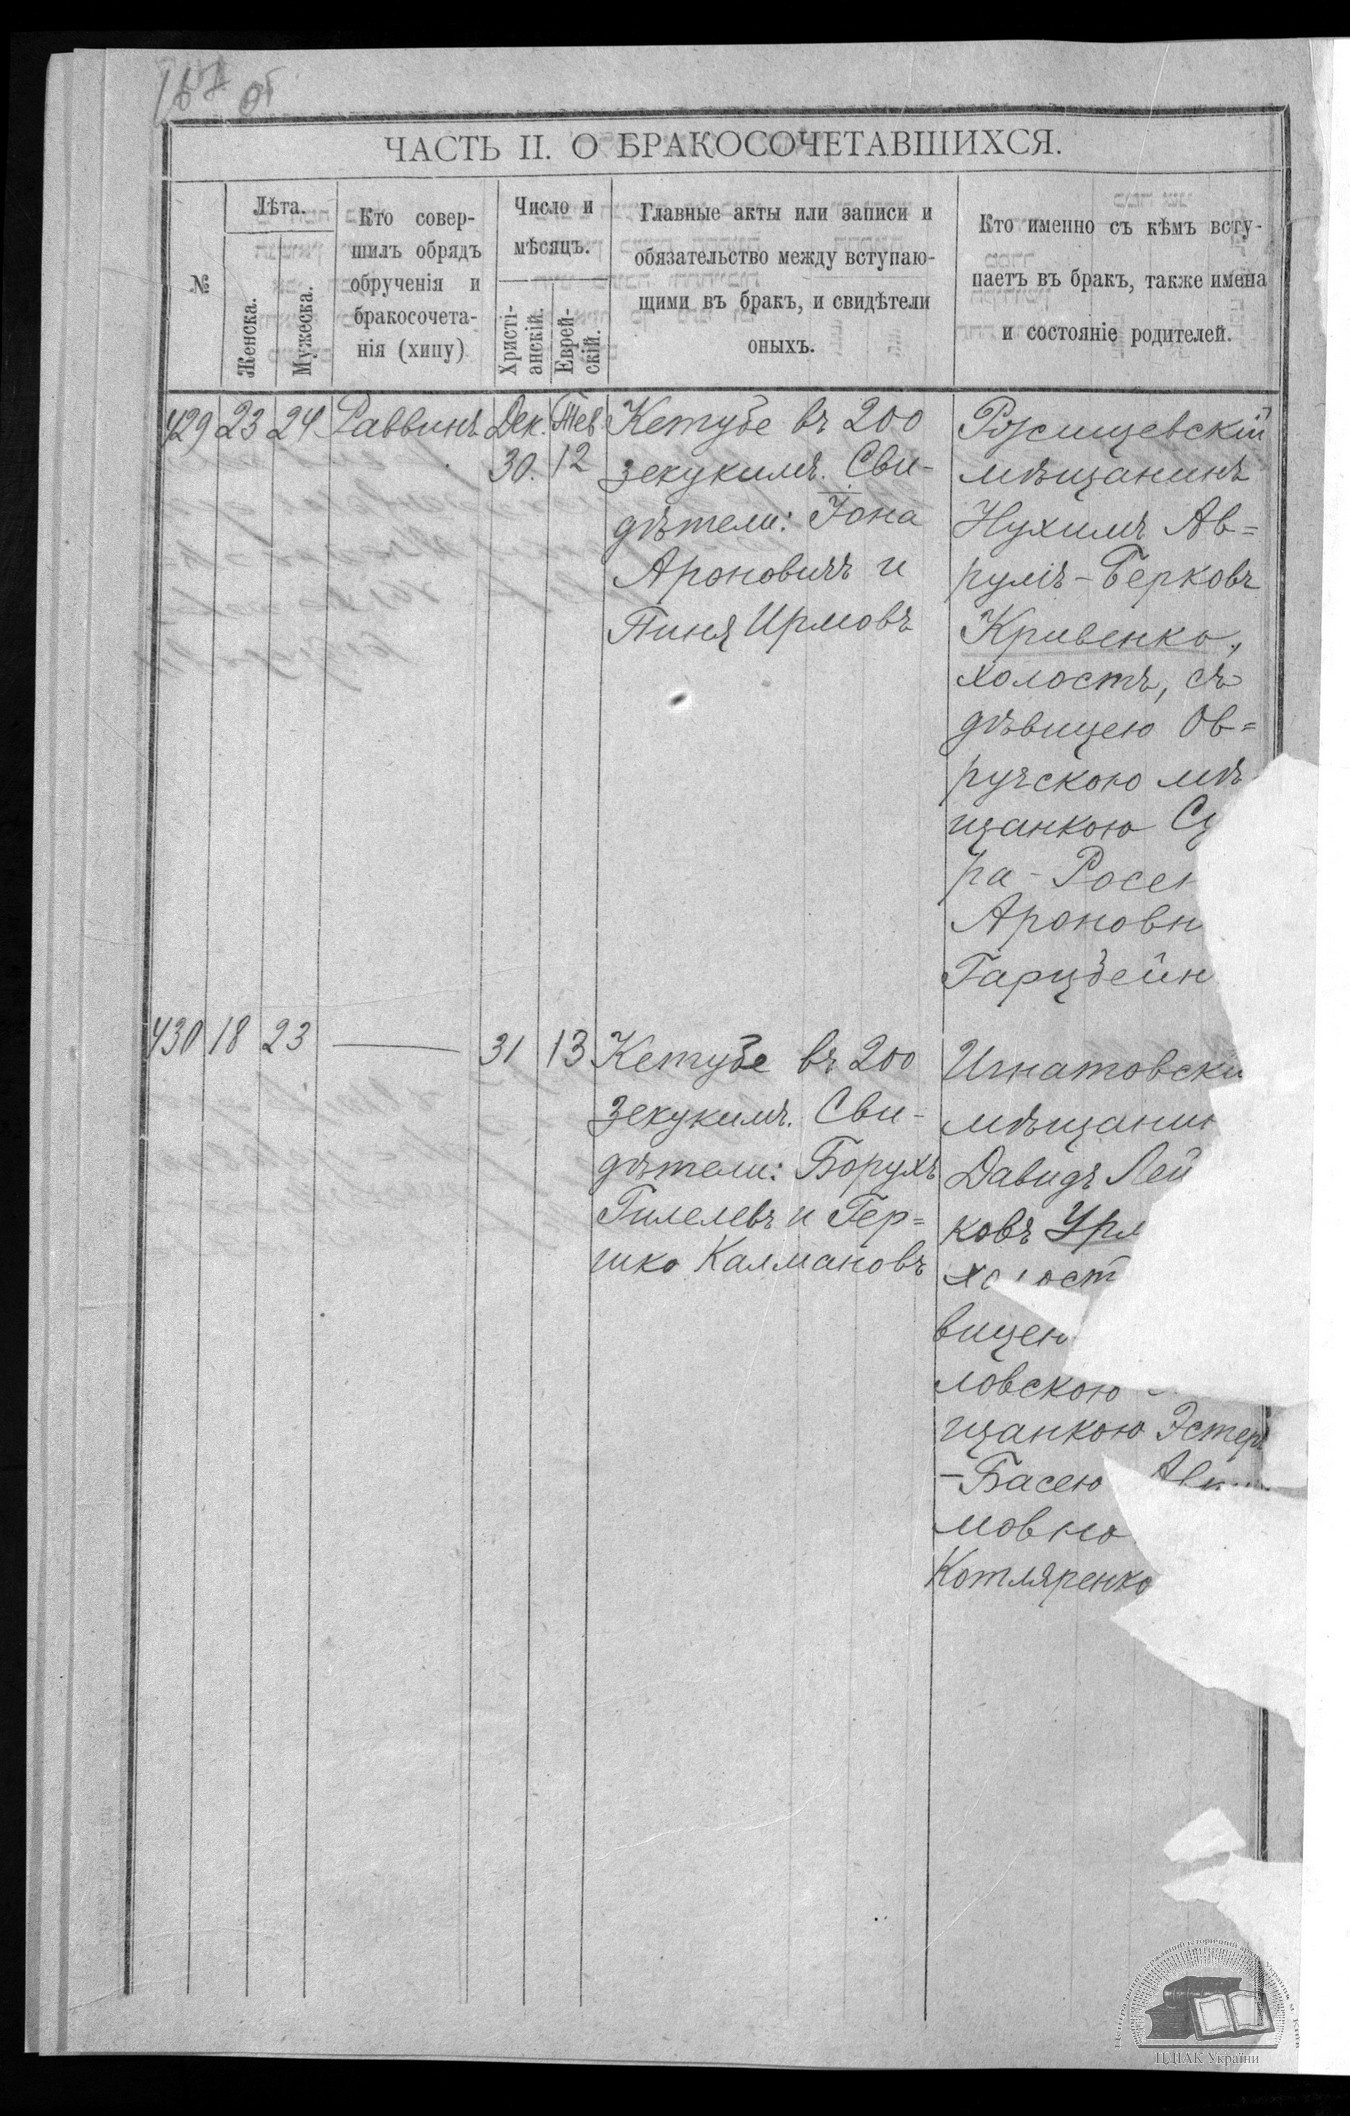 об
ЧАСТЬ II. О БРАКОСОЧЕТАВШИХСЯ.
№
Лѣта.
Женска.
Мужеска.
Кто совер-
шилъ обрядъ
обрученія и
бракосочета-
нія (хипу)
Число и
мѣсяцъ.
Христі-
анскій.
Еврей-
скій.
Главные акты или записи и
обязательство между вступаю-
щими въ бракъ, и свидѣтели
оныхъ.
Кто именно съ кѣмъ всту-
паетъ въ бракъ, также имена
и состояніе родителей.
429 23 24 Раввинъ Дек. Тев.
30. 12
Кетубе въ 200
зекукимъ. Сви-
дѣтели: Іона
Ароновичъ и
Пиня Ирмовъ
мѣщанинъ
Нухимъ Ав=
румъ-Берковъ
Кривенко,
холостъ, съ
дѣвицею Ов=
ручскою мѣ
щанкою Су
ра-Росен
Ароновн
Гарцбейн
430 18 23 — 31 13
Кетубе въ 200
зекукимъ. Сви-
дѣтели: Борухъ
Гилелевъ и Гер=
шко Калмановъ
Игнатовски
мѣщанин
Давидъ Лей
ковъ Урл
холост
вицею
ловскою
щанкою Эстер
-Басею
мовно
Котляренко
ЦДІАК України